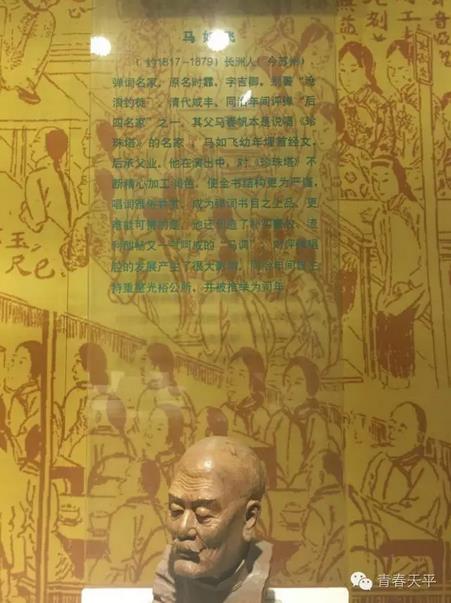 马如飞
(约1817-1879)长洲人(今苏州)
弹词名家。原名时霏,字吉卿,别署“沧
浪钓徒”。清代咸丰、同治年间评弹“后
四名家”之一,其父马春帆本是说唱《珍
珠塔》的名家。马如飞幼年埋首经文,
后承父业。他在演出中,对《珍珠塔》不
断精心加工润色,使全书结构更为严谨,
唱词雅俗共赏,成为弹词书目之上品。更
难能可贵的是,他还创造了朴实豪放、流
利酣畅又一气呵成的“马调”,对评弹唱
腔的发展产生了很大影响。同治年间曾主
持重建光裕公所,并被推举为司年
玉
尺
青春天平